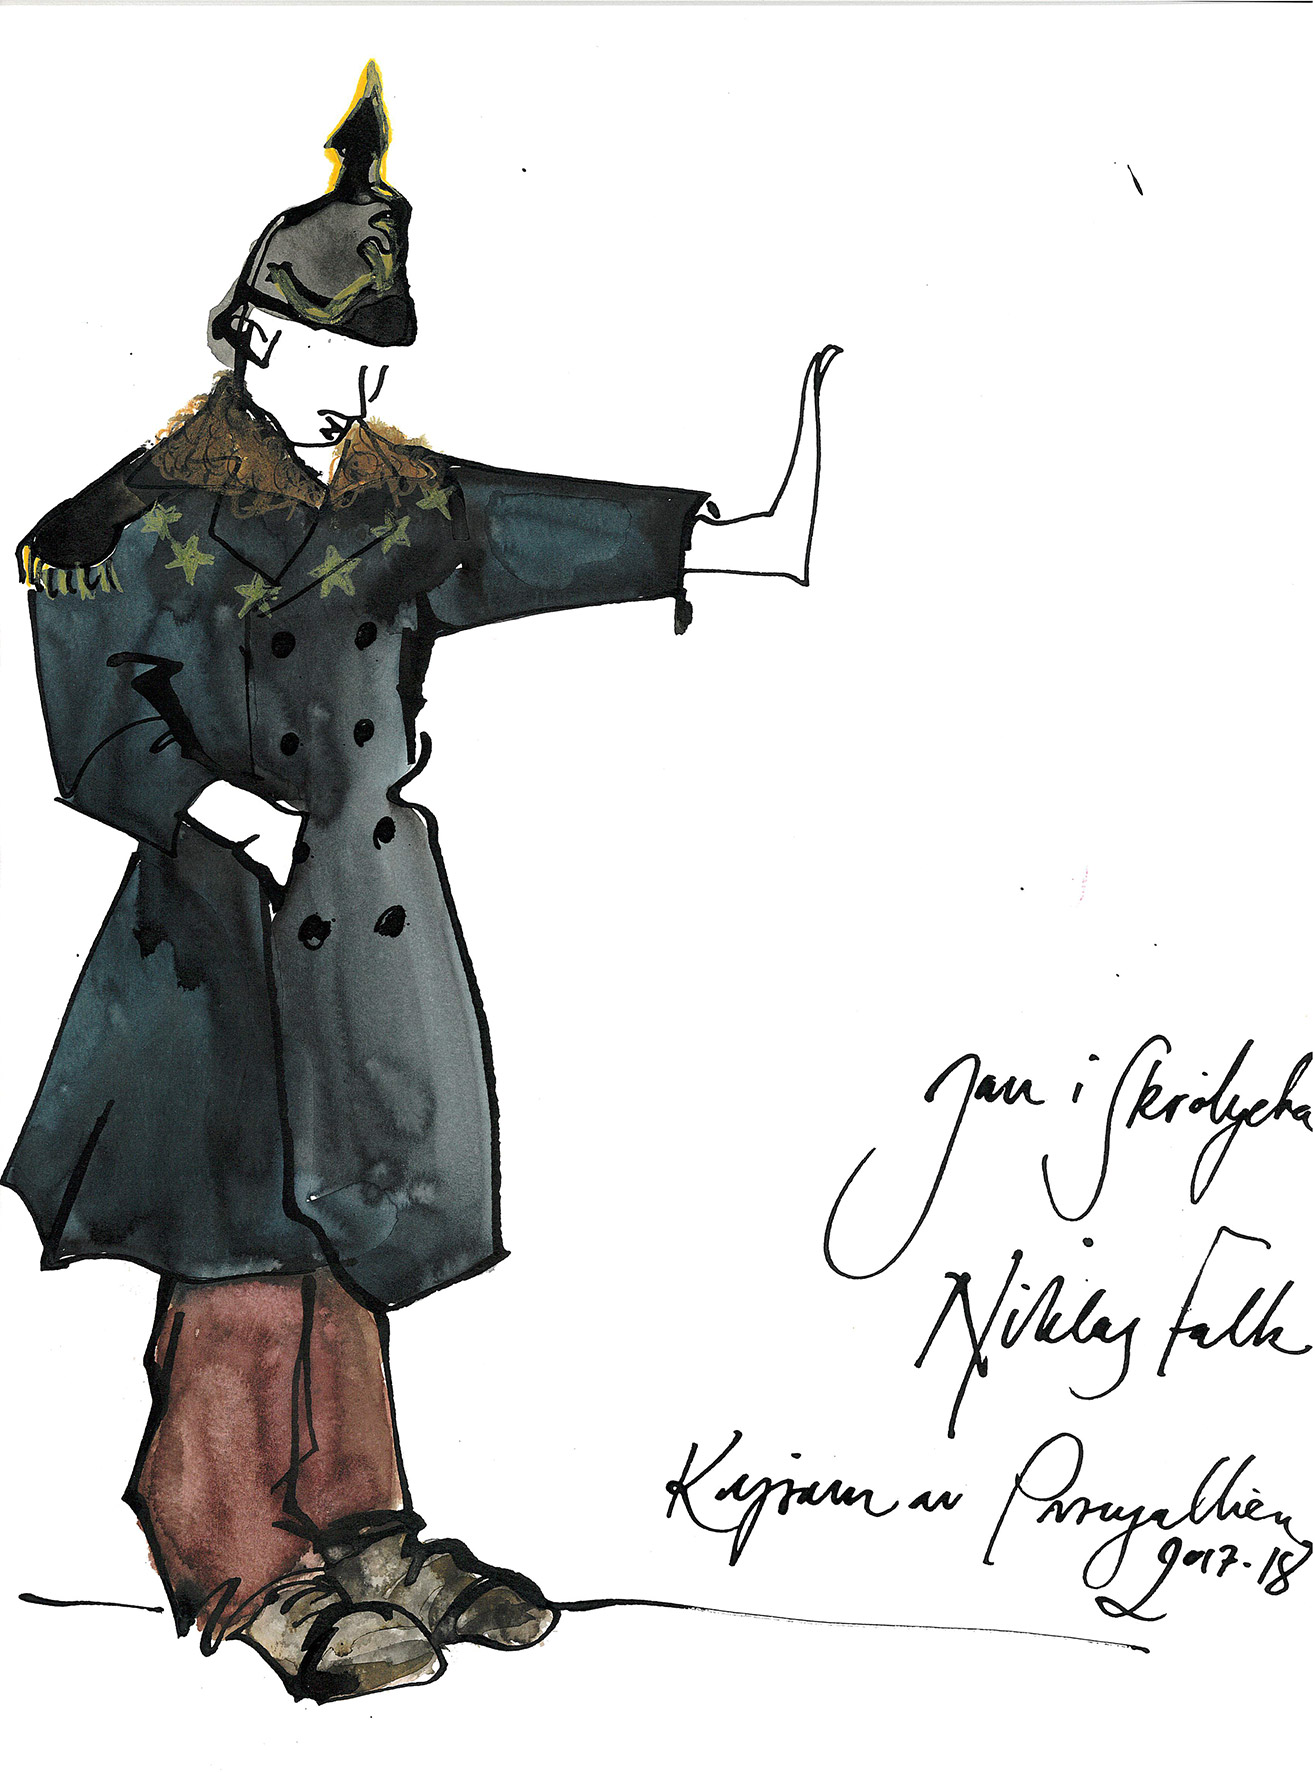 Jan i Skrolycka
Niklas Falk
Kejsarn av Portugallien
2017-18